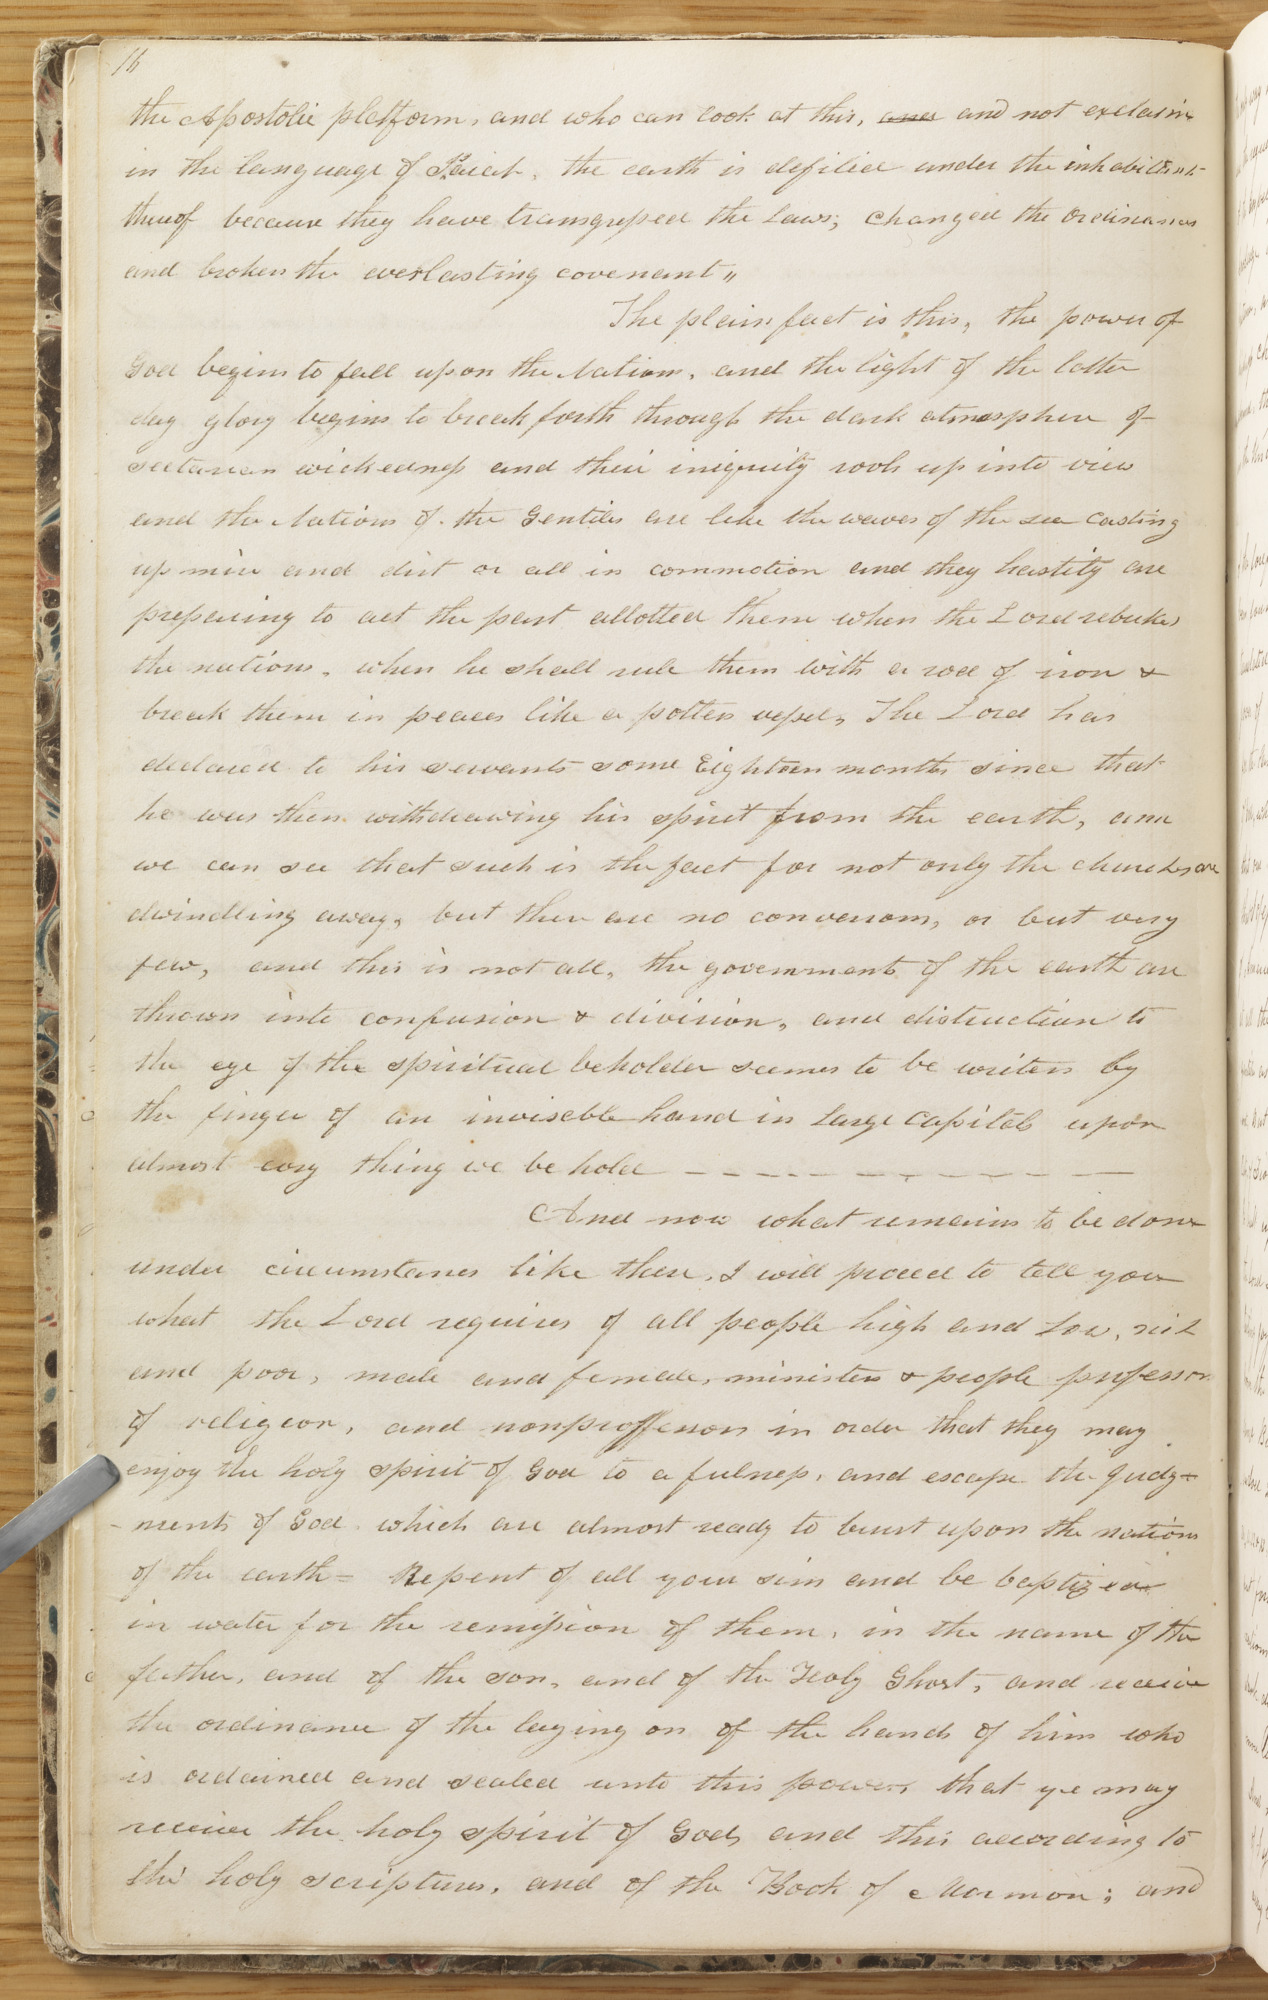 16
the Apostolic platform, and who can look at this, and not exclaim
in the language of the earth is defiled under the inhabitants
thereof because they have transgressed the Laws; Changed the Ordinances
and broken the everlasting covenant„
The plain fact is this, the power of
God begins to fall upon the Nations, and the light of the latter
day glory begins to break forth through the dark atmosphere of
sectarian wickedness and their iniquity rools up into view
and the Nations of the Gentiles are like the waves of the sea casting
up mire and dirt or all in commotion and they hastily are
prepairing to act the part allotted them when the Lord rebukes
the nations, when he shall rule them with a rod of iron &
break them in peaces like a potters vessel, The Lord has
declared to his servants some Eighteen months since that
he was then withdrawing his spirit from the earth, and
we can see that such is the fact for not only the churches are
dwindling away, but there are no conversions, or but very
few, and this is not all, the governments of the earth are
thrown into confusion & division, and distruction to
the eye of the spiritual beholder seemes to be writen by
the finger of an inviseble hand in Large Capitals upon
almost evry thing we behold — — — — — — — — —
And now what remains to be done
under circumstances like these, I will proceed to tell you
what the Lord requires of all people high and Low, rich
and poor, male and female, ministers & people professors
of religion, and nonproffessors in order that they may
enjoy the holy spirit of God to a fulness, and escape the Judg=
-ments of God which are almost ready to burst upon the nations
of the earth= Repent of all your sins and be baptized
in water for the remission of them, in the name of the
father, and of the son, and of the Holy Ghost, and receive
the ordinance of the laying on of the hands of him who
is ordained and sealed unto this power, that ye may
receive the holy spirit of God, and this according to
the holy scriptures, and of the Book of Mormon; and